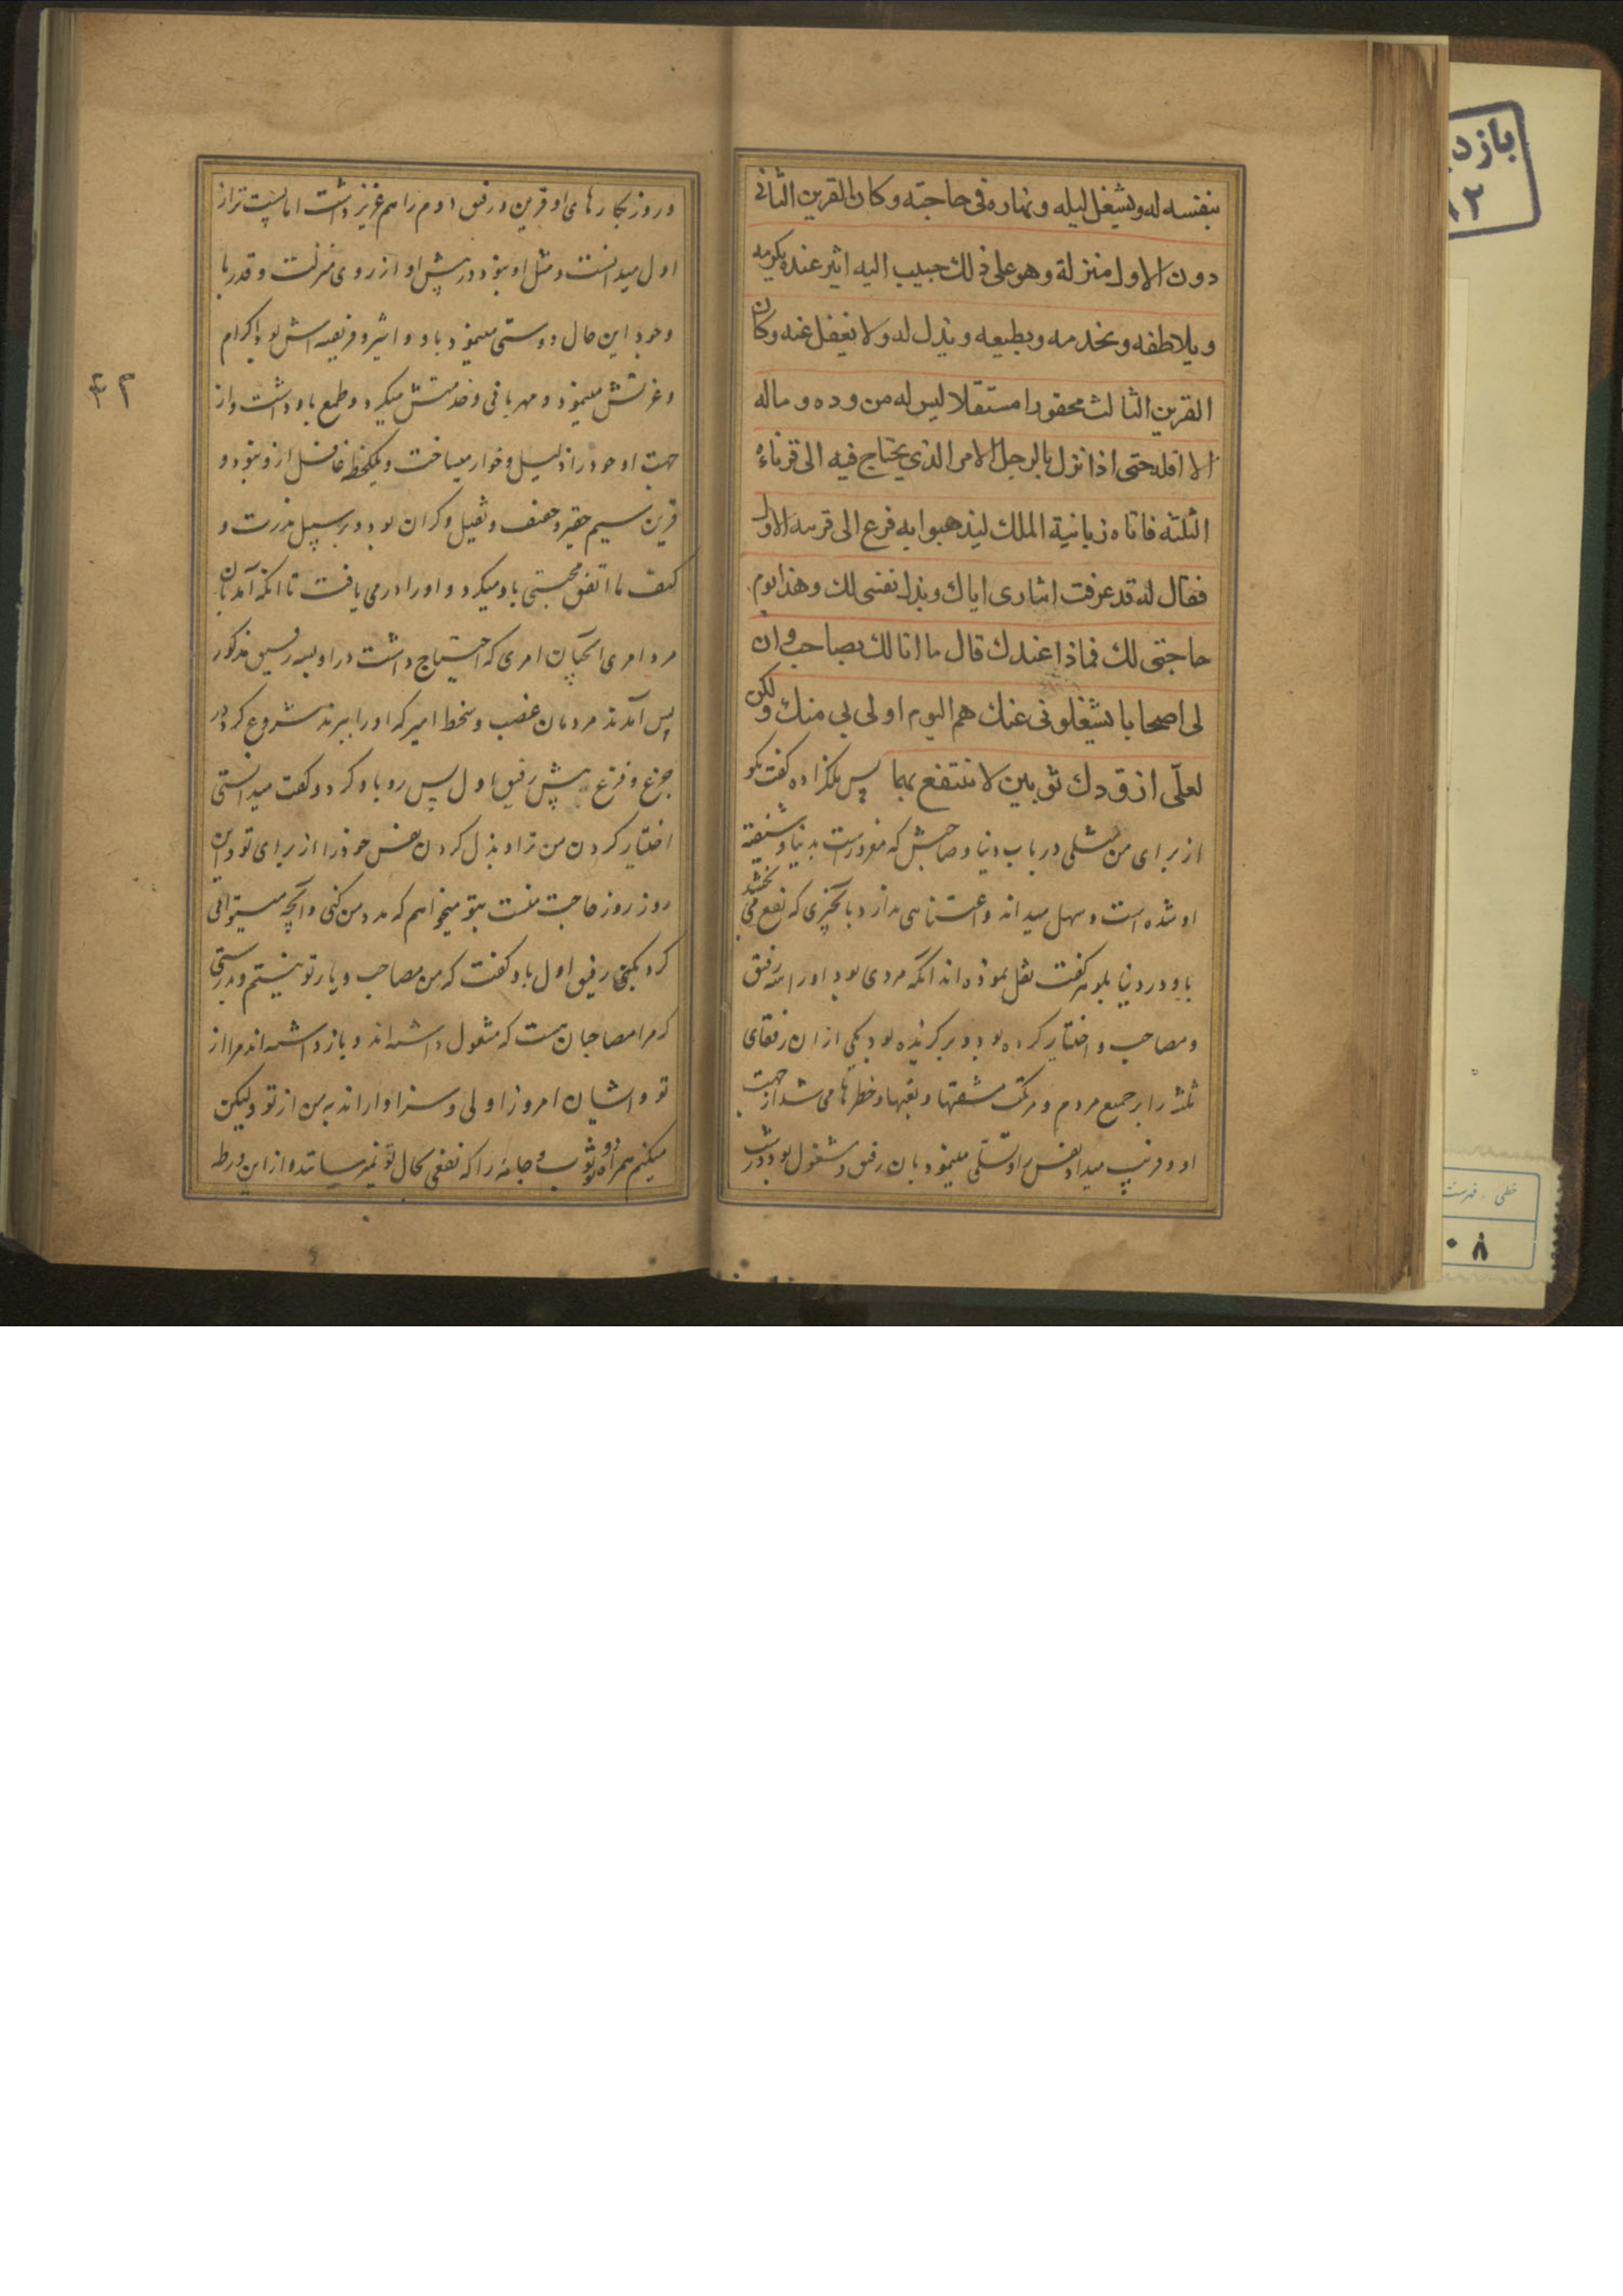 بنفسه له ويشغل ليله ونهاره فى حاجته وكان القرين الثانى
دون الاول منزلة وهو على ذلك حبيب اليه اثير عنده يكرمه
ويلاطفه ويخدمه ويطيعه ويبذل له ولا يغفل عنه وكان
القرين الثالث محقورا مستثقلا ليس له من وده وماله
الا اقله حتى اذا نزل بالرجل الامر الذى يحتاج فيه الى قرنائه
الثلثه فاتاه زبانية الملك ليذهبوا به فزع الى قرينه الاول
فقال له قد عرفت ايثارى اياك وبذل نفسى لك وهذا يوم
حاجتى لك فماذا عندك قال ما انا لك بصاحب وان
لى اصحابا يشغلونى عنك هم اليوم اولى بى منك ولكن
لعلّى ازودك ثوبين لا تنتفع بهما پس ملكزاده كفت بكو
از براى من مثلى در باب دنيا و صاحبش كه مغرورست بدنيا و شيفته
او شده است و سهل ميداند و اعتنايى ندارد بآنچيزى كه نفع مى بخشد
باو در دنيا بلوهر كفت نقل نموده اند انكه مردى بود او را سه رفيق
و مصاحب و اختيار كرده بود و بركزيده بود يكى از ان رفقاى
ثلثه را بر جميع مردم و مرتكب مشقتها و تعبها و خطرها مى شد از جهت
او و فريب ميداد نفس او و تسلى مينمود بان رفيق و مشغول بود در شب
و روز بكارهاى او و قرين و رفيق دوم را هم عزيز داشت اما پست تر از
اول ميدانست و مثل او نبود در پيش او از روى منزلت و قدر با
وجود اين حال دوستى مينمود باو و اثير و فريفته اش بود و اكرام
و عزتش مينمود و مهربانى و خدمتش ميكرد و طمع باو داشت و از
جهت او خود را ذليل و خوار ميساخت و يكلحظه غافل از و نبود و
قرين سيم حقير و ضعيف و ثقيل و كران بود و بر سبيل ندرت و
كيف ما اتفق محبتى باو ميكرد و او را در مى يافت تا انكه آمد بان
مرد امرى انچنان امرى كه احتياج داشت در او بسه رفيق مذكور
پس آمدند مردمان غضب و سخط امير كه او را ببرند شروع كرد در
جزع و فزع پيش رفيق اول پس رو باو كرد و كفت ميدانستى
اختيار كردن من ترا و بذل كردن نفس خود را از براى تو و اين
روز روز حاجت منست بتو ميخواهم كه مدد من كنى و آنچه ميتوانى
كرد بكنى رفيق اول باو كفت كه من مصاحب و يار تو نيستم و بدرستى
كه مرا مصاحبان هست كه مشغول داشته اند و باز داشته اند مرا از
تو و ايشان امروز اولى و سزاوارانند به من از تو وليكن
ميكنم همراه تو دو ثوب و جامه را كه نفعى بحال تو نميرساند و از اين ورطه
بازد
۲
خطى . فهرست
۰۸